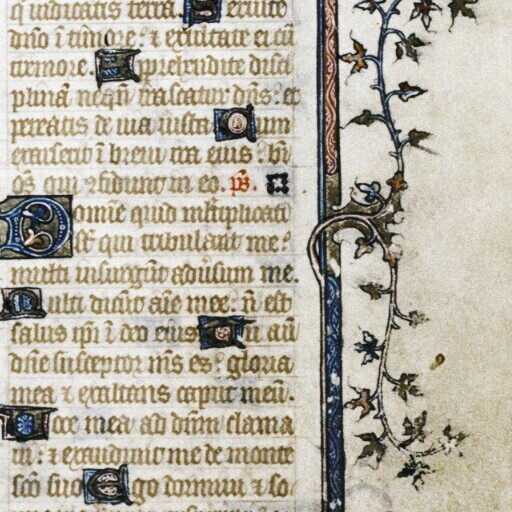 q̄ iudicatis terrā. Seruite
dn̄o ī timore: ⁊ exultate ei cū
tremore. Apprehendite disci
plinā neqn̄ irascatur dn̄s: et
pereatis de uia iusta. Cum
exarserit ī breui ira eius: bt̄i
om̄s qui ꝯfidunt in eo. ps̄.
Domīe quid mltiplicati
st̄ qui tribulant me?
multi insurgūt aduersum me.
Multi dicūt aīe mee: n̄ est
salus ipi ī do eius. Tu aūt
dn̄e susceptor ms̄ es: gloria
mea ⁊ exaltans caput meū.
Voce mea ad dn̄m clama
ui: ⁊ exaudiuit me de monte
sc̄o suo. Ego dormiui ⁊ so